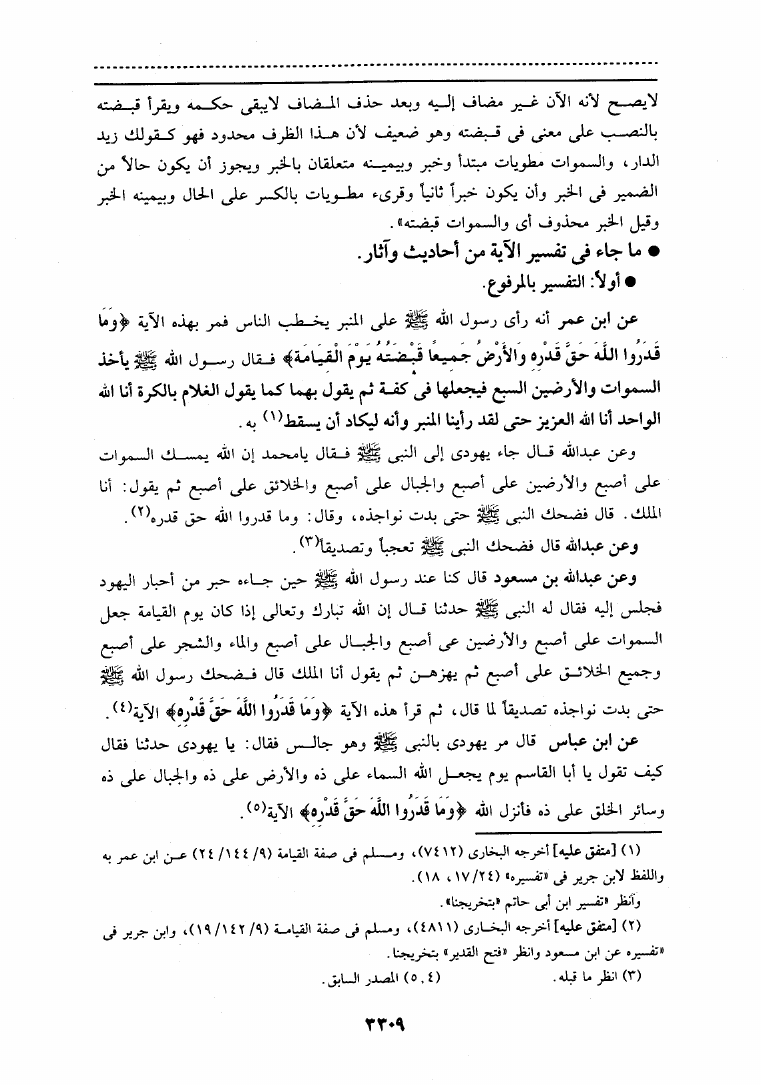 لايصح لأنه الآن غير مضاف إليه وبعد حذف المضاف لايبقى حكمه ويقرأ قبضته
بالنصب على معنى فى قبضته وهو ضعيف لأن هذا الظرف محدود فهو كقولك زيد
الدار، والسموات مطويات مبتدأ وخبر وبيمينه متعلقان بالخبر ويجوز أن يكون حالاً من
الضمير فى الخبر وأن يكون خبراً ثانياً وقرىء مطويات بالكسر على الحال وبيمينه الخبر
وقيل الخبر محذوف أى والسموات قبضته».
● ما جاء فى تفسير الآية من أحاديث وآثار.
● أولاً: التفسير بالمرفوع.
عن ابن عمر أنه رأى رسول الله ﷺ على المنبر يخطب الناس فمر بهذه الآية ﴿وَمَا
قَدَرُوا اللَّهَ حَقَّ قَدْرِهِ وَالأَرْضُ جَمِيعًا قَبْضَتُهُ يَوْمَ الْقِيَامَةِ﴾ فقال رسول الله ﷺ يأخذ
السموات والأرضين السبع فيجعلها فى كفة ثم يقول بهما كما يقول الغلام بالكرة أنا الله
الواحد أنا الله العزيز حتى لقد رأينا المنبر وأنه ليكاد أن يسقط(١) به.
وعن عبدالله قال جاء يهودى إلى النبى ﷺ فقال يامحمد إن الله يمسك السموات
على أصبع والأرضين على أصبع والجبال على أصبع والخلائق على أصبع ثم يقول: أنا
الملك. قال فضحك النبى ﷺ حتى بدت نواجذه، وقال: وما قدروا الله حق قدره(٢).
وعن عبدالله قال فضحك النبى ﷺ تعجباً وتصديقاً(٣).
وعن عبدالله بن مسعود قال كنا عند رسول الله ﷺ حين جاءه حبر من أحبار اليهود
فجلس إليه فقال له النبى ﷺ حدثنا قال إن الله تبارك وتعالى إذا كان يوم القيامة جعل
السموات على أصبع والأرضين عى أصبع والجبال على أصبع والماء والشجر على أصبع
وجميع الخلائق على أصبع ثم يهزهن ثم يقول أنا الملك قال فضحك رسول الله ﷺ
حتى بدت نواجذه تصديقاً لما قال، ثم قرأ هذه الآية ﴿وَمَا قَدَرُوا اللَّهَ حَقَّ قَدْرِهِ﴾ الآية(٤).
عن ابن عباس قال مر يهودى بالنبى ﷺ وهو جالس فقال: يا يهودى حدثنا فقال
كيف تقول يا أبا القاسم يوم يجعل الله السماء على ذه والأرض على ذه والجبال على ذه
وسائر الخلق على ذه فأنزل الله ﴿وَمَا قَدَرُوا اللَّهَ حَقَّ قَدْرِهِ﴾ الآية(٥).
(١) [متفق عليه] أخرجه البخارى (٧٤١٢)، ومسلم فى صفة القيامة (٢٤/١٤٤/٩) عن ابن عمر به
واللفظ لابن جرير فى «تفسيره» (١٧/٢٤، ١٨).
وأنظر «تفسير ابن أبى حاتم «بتخريجنا».
(٢) [متفق عليه] أخرجه البخارى (٤٨١١)، ومسلم فى صفة القيامة (١٩/١٤٢/٩)، وابن جرير فى
«تفسيره عن ابن مسعود وانظر «فتح القدير» بتخريجنا.
(٣) انظر ما قبله. (٤، ٥) المصدر السابق.
٣٣٠٩